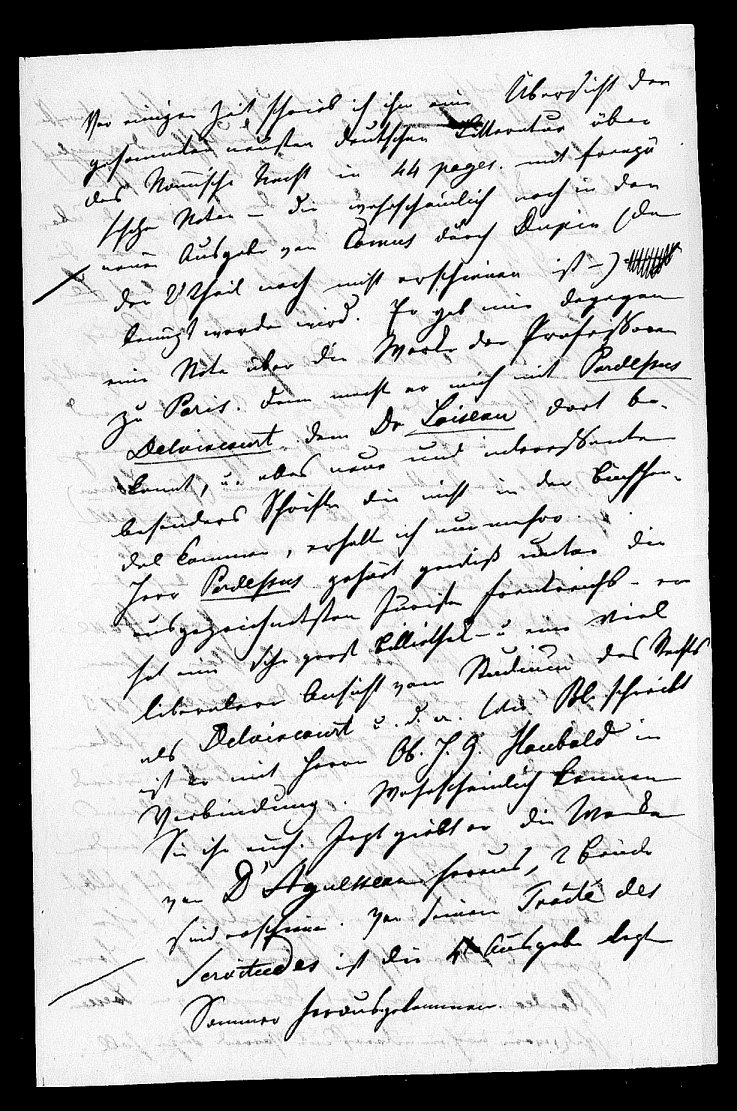 Vor einiger Zeit schrieb ich ihm eine Übersicht der
gesammten neusten deutschen Litteratur über
das Römische Recht in 44 pages. mit franzö
sische Noten – die wahrscheinlich noch in der
neuen Ausgabe von Camus durch Dupin (da
der 2 Theil noch nicht erschienen ist –)
benuzt werden wird. Er gab mir dagegen
eine Note über die Werke der Professoren
zu Paris. Dann macht er mich mit Pardessus
Delvincourt, dem Dr Loiseau dort be-
kannt, u. alles neue und interessante
besonders Schriften die nicht in den Buchhan-
del kommen, erhalte ich nunmehro.
Herr Pardessus gehört gewiß unter die
ausgezeichnetsten Juristen Frankreichs – er
hat eine sehr große Bibliothek – u eine viel
liberalere Ansicht vom Studium des Rechts
als Delvincourt u. d. a. (die Bl. schreibt
ist er mit Herrn Ob. H. G. Haubold in
Verbindung. Wahrscheinlich kennen
Sie ihn auch. Jezt giebt er die Werke
von D'Aguesseau heraus, 2 Bände
sind erschienen. Von seinem Traité des
Servitudes ist die 4te Ausgabe lezten
Sommer herausgekommen.